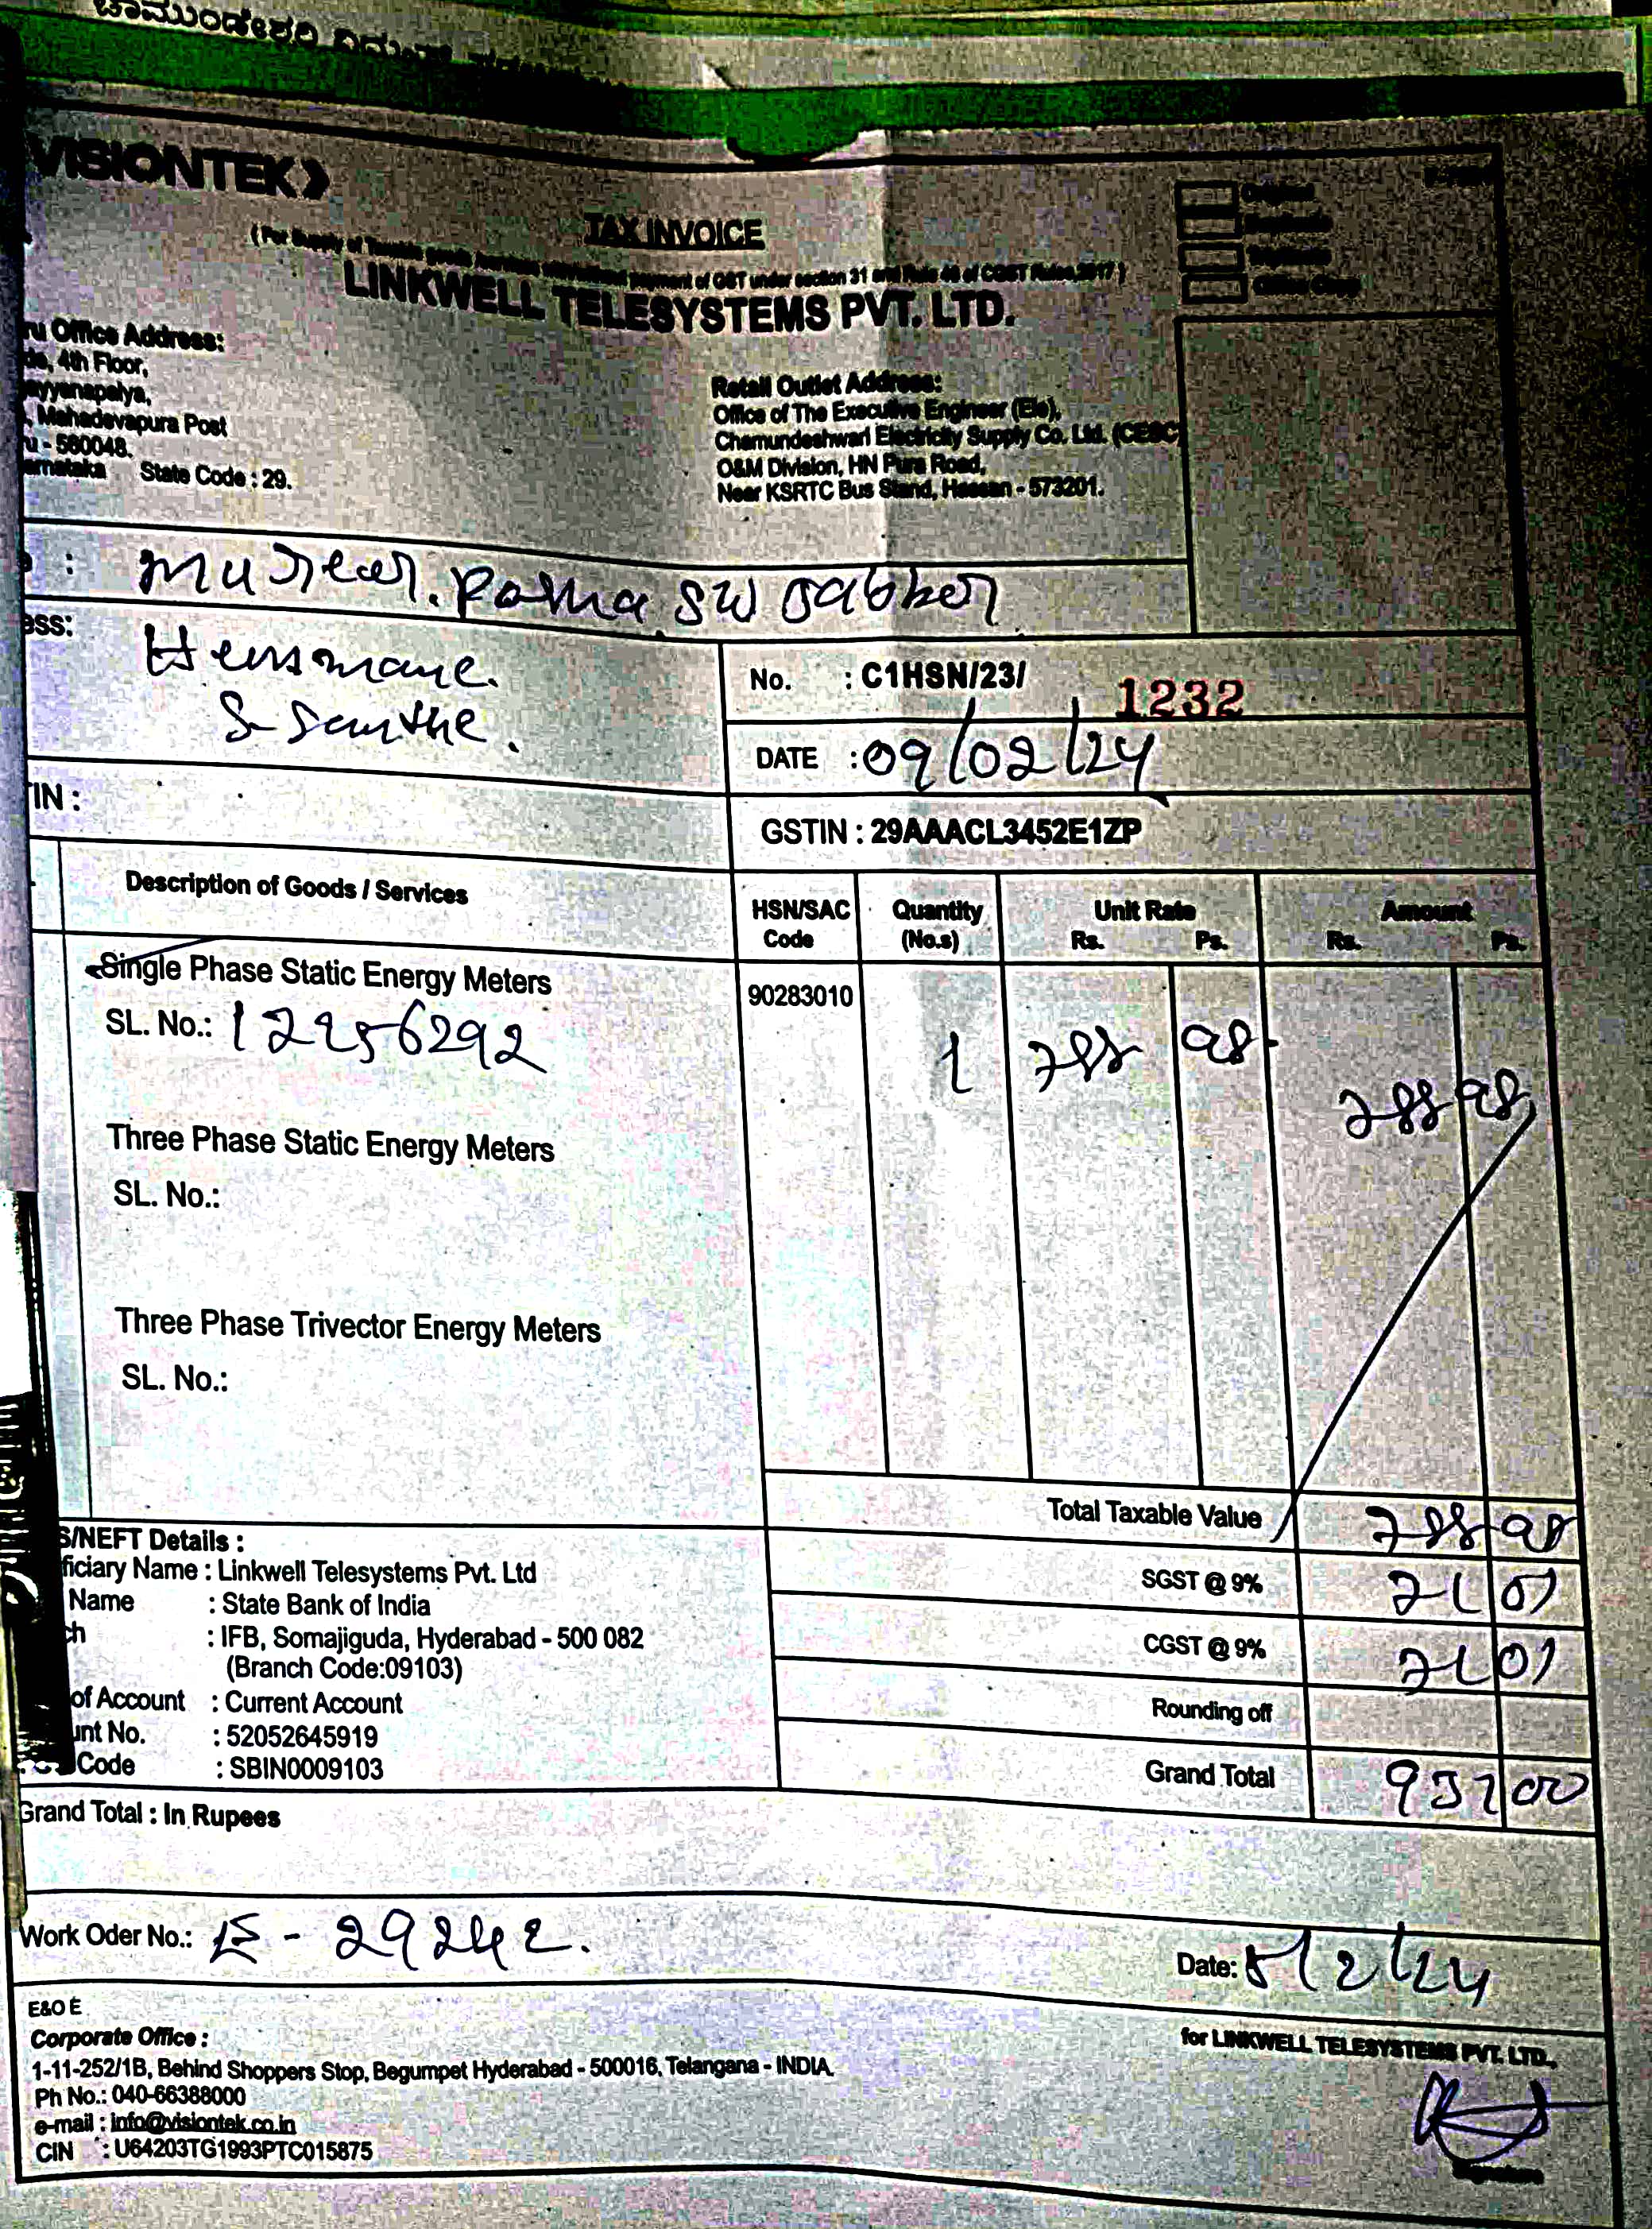 VISIONTEK
TAX INVOICE
LINKWELL TELESYSTEMS PVT. LTD.
Original
Office Copy
Office Address:
4th Floor,
Mahadevapura Post
- 560048.
State Code : 29.
Retail Outlet Address:
Office of The Executive Engineer (Ele),
Chamundeshwari Electricity Supply Co. Ltd. (CESC)
O&M Division, HN Pura Road,
Near KSRTC Bus Stand, Hassan - 573201.
No. : C1HSN/23/ 1232
DATE : 09/02/24
GSTIN : 29AAACL3452E1ZP
Description of Goods / Services
HSN/SAC Code
Quantity (No.s)
Unit Rate Rs. Ps.
Amount Rs. Ps.
Single Phase Static Energy Meters
90283010
SL. No.: 12256292
1 788 98
788 98
Three Phase Static Energy Meters
SL. No.:
Three Phase Trivector Energy Meters
SL. No.:
Total Taxable Value 788 98
SGST @ 9% 71 01
CGST @ 9% 71 01
Rounding off
Grand Total 931 00
S/NEFT Details :
Name : Linkwell Telesystems Pvt. Ltd
Name : State Bank of India
: IFB, Somajiguda, Hyderabad - 500 082
(Branch Code:09103)
of Account : Current Account
No. : 52052645919
Code : SBIN0009103
Grand Total : In Rupees
Work Oder No.: - 29242.
Date: 5/2/24
E&O E
Corporate Office :
1-11-252/1B, Behind Shoppers Stop, Begumpet Hyderabad - 500016, Telangana - INDIA.
Ph No.: 040-66388000
e-mail : info@visiontek.co.in
CIN : U64203TG1993PTC015875
for LINKWELL TELESYSTEMS PVT. LTD.,
Signature